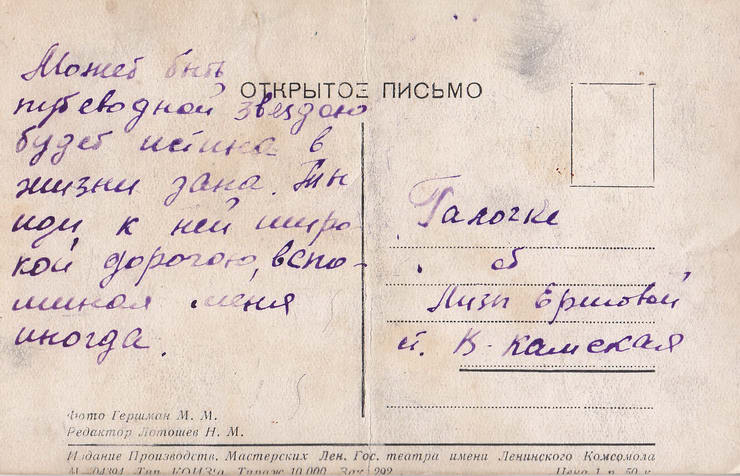 ОТКРЫТОЕ ПИСЬМО
Может быть
путеводной звездою
будет истина в
жизни дана. Ты
иди к ней широ-
кой дорогою, вспо-
миная меня
иногда.
Галочке
от
Лизы Ершовой
п. В-Камская
Фото Гершман М. М.
Редактор Лотошев Н. М.
Издание Производств. Мастерских Лен. Гос. театра имени Ленинского Комсомола
М-04394 Тип. Тираж 10.000 Зак. 292 Цена 1 р. 50 к.